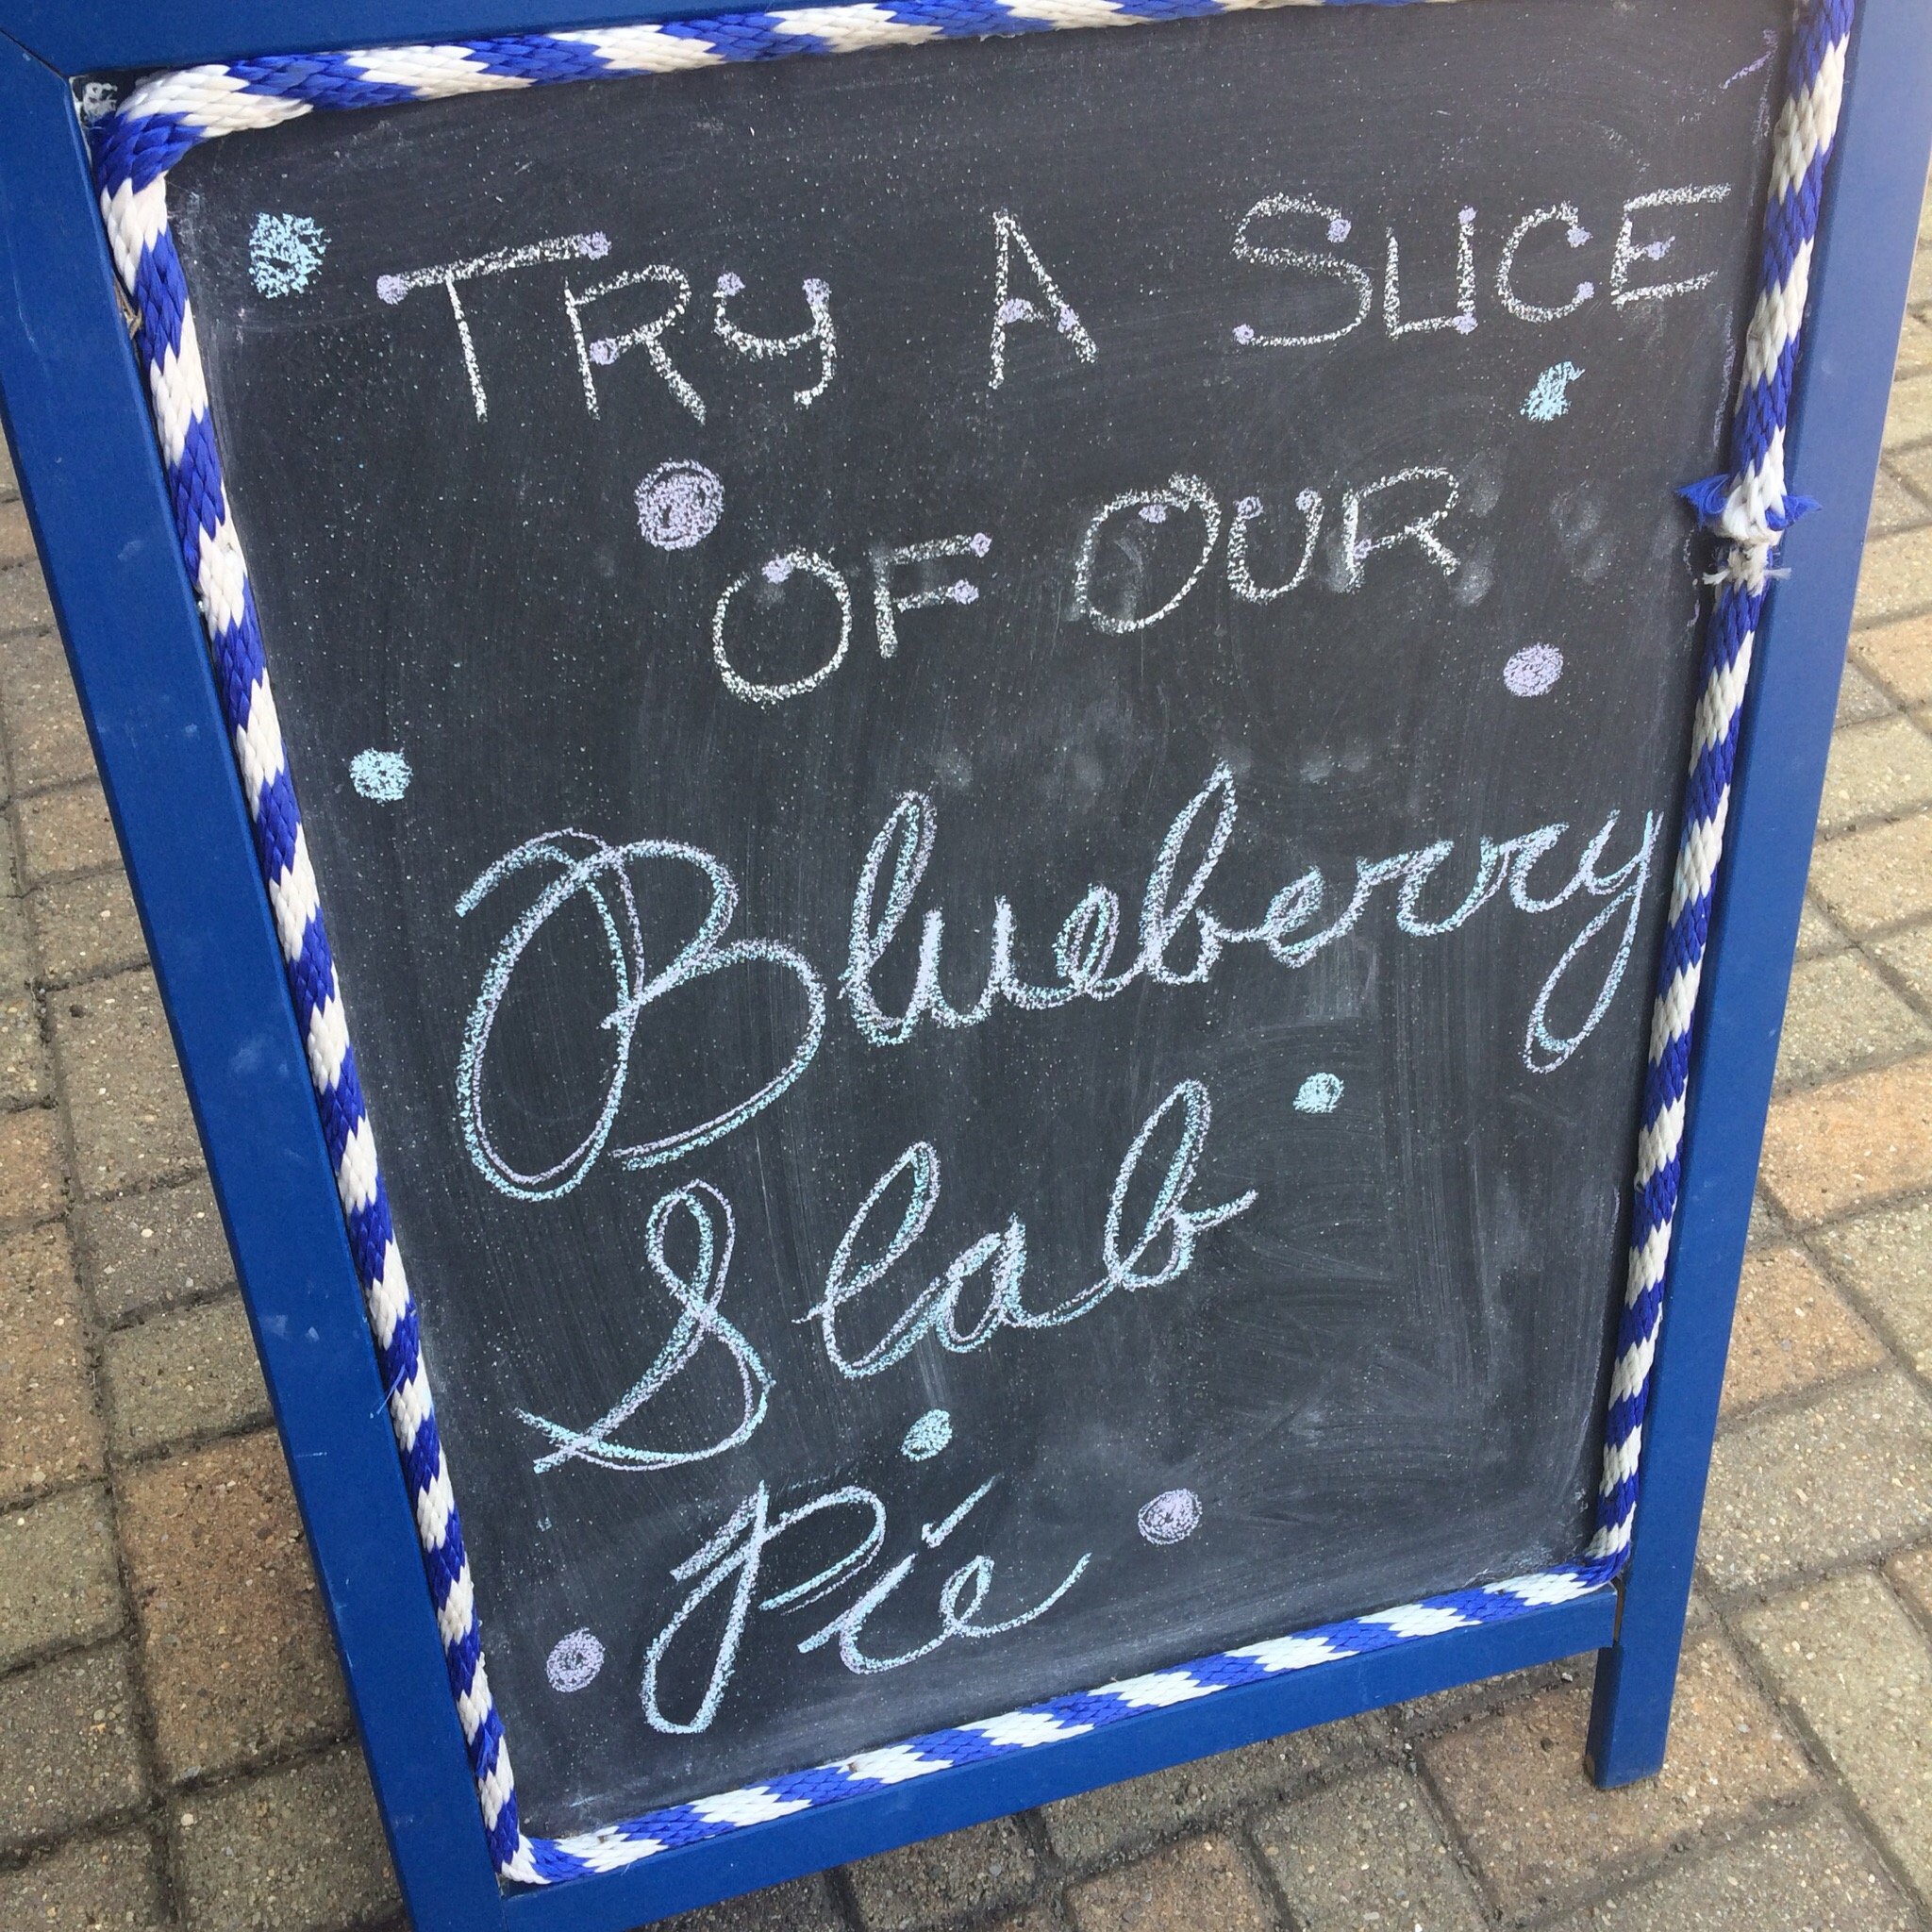 TRY A SLICE
OF OUR
Blueberry
Slab
Pie